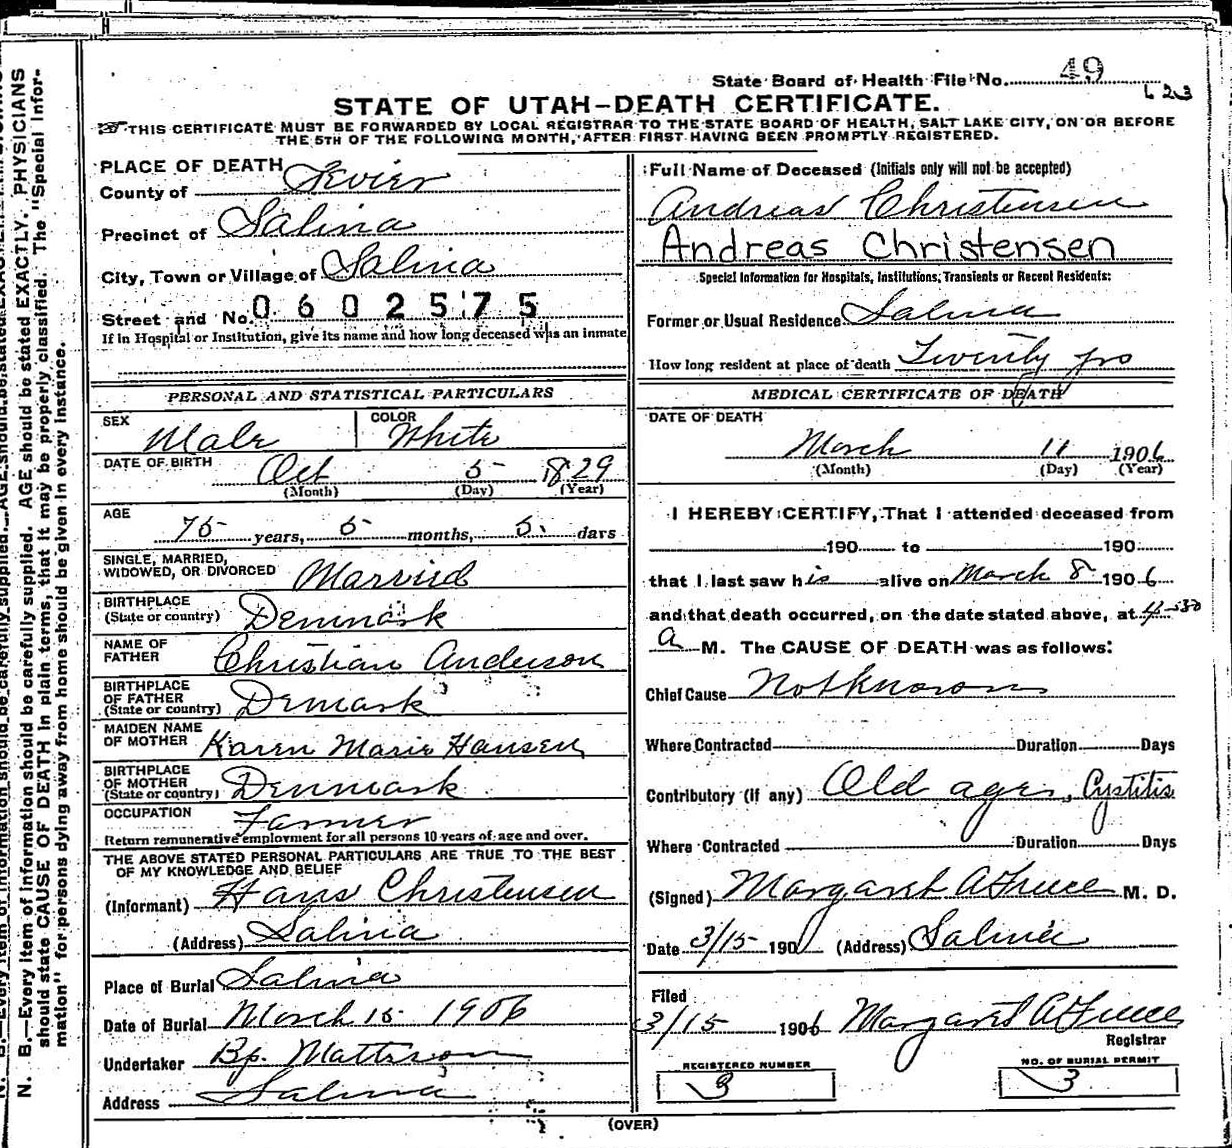 State Board of Health File No. 49
623
STATE OF UTAH—DEATH CERTIFICATE.
THIS CERTIFICATE MUST BE FORWARDED BY LOCAL REGISTRAR TO THE STATE BOARD OF HEALTH, SALT LAKE CITY, ON OR BEFORE
THE 5TH OF THE FOLLOWING MONTH, AFTER FIRST HAVING BEEN PROMPTLY REGISTERED.
PLACE OF DEATH
County of Sevier
Precinct of Salina
City, Town or Village of Salina
Street and No. 0602575
If in Hospital or Institution, give its name and how long deceased was an inmate
PERSONAL AND STATISTICAL PARTICULARS
SEX Male COLOR White
DATE OF BIRTH Oct 5 1829
(Month) (Day) (Year)
AGE
75 years, 5 months, 5 days
SINGLE, MARRIED,
WIDOWED, OR DIVORCED Married
BIRTHPLACE
(State or country) Denmark
NAME OF
FATHER Christian Anderson
BIRTHPLACE
OF FATHER
(State or country) Denmark
MAIDEN NAME
OF MOTHER Karen Marie Hansen
BIRTHPLACE
OF MOTHER
(State or country) Denmark
OCCUPATION Farmer
Return remunerative employment for all persons 10 years of age and over.
THE ABOVE STATED PERSONAL PARTICULARS ARE TRUE TO THE BEST
OF MY KNOWLEDGE AND BELIEF
(Informant) Hans Christensen
(Address) Salina
Place of Burial Salina
Date of Burial March 15 1906
Undertaker Bp. Mattson
Address Salina
Full Name of Deceased (Initials only will not be accepted)
Andreas Christensen
Andreas Christensen
Special Information for Hospitals, Institutions, Transients or Recent Residents:
Former or Usual Residence Salina
How long resident at place of death Twenty yrs
MEDICAL CERTIFICATE OF DEATH
DATE OF DEATH
March 11 1906
(Month) (Day) (Year)
I HEREBY CERTIFY, That I attended deceased from
190 to 190
that I last saw his alive on March 8 1906
and that death occurred, on the date stated above, at 4-30
a M. The CAUSE OF DEATH was as follows:
Chief Cause Not Known
Where Contracted Duration Days
Contributory (if any) Old age, Cystitis
Where Contracted Duration Days
(Signed) Margaret A M. D.
Date 3/15 190 (Address) Salina
Filed
3/15 1906 Margaret A
Registrar
REGISTERED NUMBER
3
NO. OF BURIAL PERMIT
3
(OVER)
N. B.—Every item of information should be carefully supplied. AGE should be stated EXACTLY. PHYSICIANS
should state CAUSE OF DEATH in plain terms, that it may be properly classified. The "Special Infor-
mation" for persons dying away from home should be given in every instance.